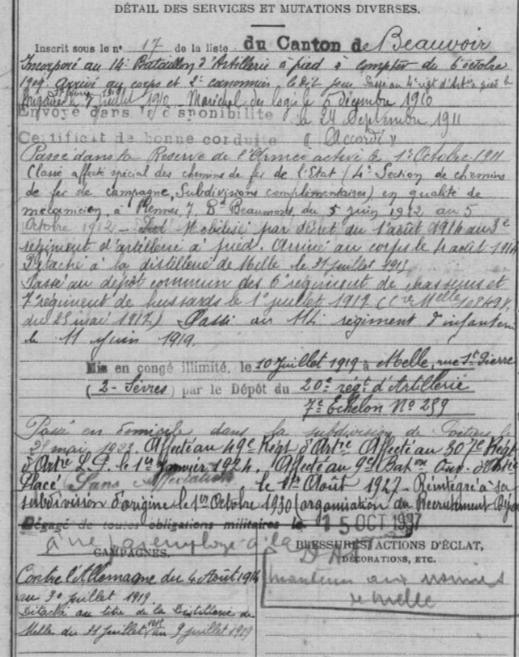 DÉTAIL DES SERVICES ET MUTATIONS DIVERSES.
Inscrit sous le n° 17 de la liste du Canton de Beauvoir
Incorporé au 14e Bataillon d'Artillerie à pied à compter du 6 octobre
1909 arrivé au corps et 2e canonnier le dit jour
Brigadier le 7 juillet 1910 Maréchal des logis le 6 Décembre 1910
Envoyé dans la disponibilité le 24 Septembre 1911
Certificat de bonne conduite Accordé
Passé dans la Réserve de l'Armée active le 1er Octobre 1911
Classé affecté spécial des chemins de fer de l'Etat (4e Section de chemins
de fer de campagne, Subdivisions complémentaires) en qualité de
mécanicien, à Rennes, 7, Bd Beaumont, du 5 juin 1912 au 5
Octobre 1912. Mobilisé par décret du 1er août 1914 au 3e
régiment d'artillerie à pied. Arrivé au corps le 4 août 1914
Détaché à la distillerie de Melle le 31 juillet 1915
Passé au dépôt commun des 6e régiment de chasseurs et
7e régiment de hussards le 1er juillet 1917 (Cre Melle
du 23 mai 1917) Passé au 114 régiment d'infanterie
le 11 Juin 1919.
Mis en congé illimité, le 10 Juillet 1919 à Melle, rue St Pierre
(2-Sèvres) par le Dépôt du 20e régt d'Artillerie
7e Echelon No 259
Passé en domicile dans la subdivision de Poitiers le
Affecté au 49e Régt d'Artie Affecté au 307e Régt
d'Artie le 1er Janvier 1924. Affecté au
Placé Sans Affectation le 1er Août 1927. Réintégré à sa
subdivision d'origine le 1er Octobre 1930 (organisation du Recrutement
Dégagé de toutes obligations militaires le 15 OCT 1937
CAMPAGNES.
Contre l'Allemagne du 4 Août 1914
au 30 juillet 1919
Détaché au titre de la Distillerie de
Melle du 31 juillet 1915 au 9 juillet 1919
BLESSURES, ACTIONS D'ÉCLAT,
DÉCORATIONS, ETC.
aux usines
de Melle